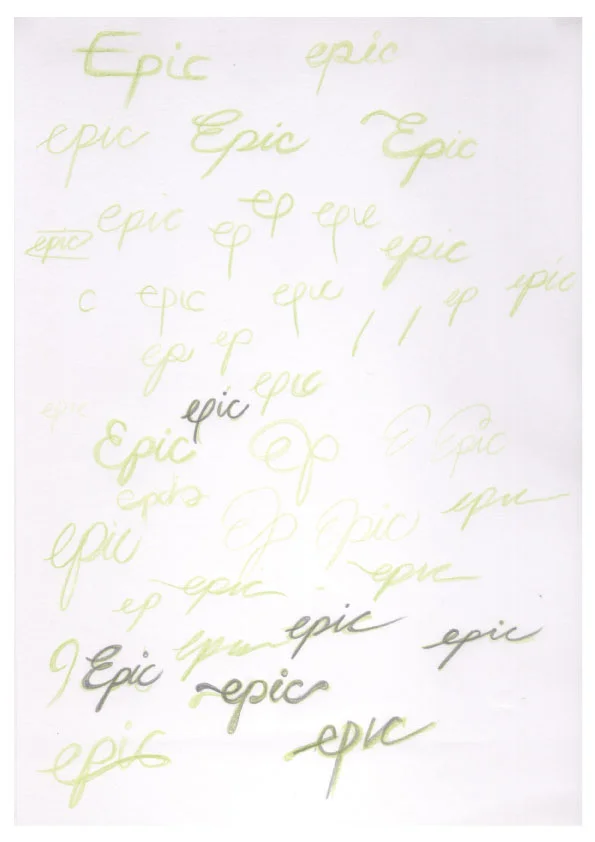 Epic epic
epic Epic Epic
ep
epic epic ep epic
epic
c epic epic ep epic
ep ep
epic
epic epic
Epic ep E Epic
epic ep Epic epic
ep epic epic
epic epic epic
Epic epic
epic epic